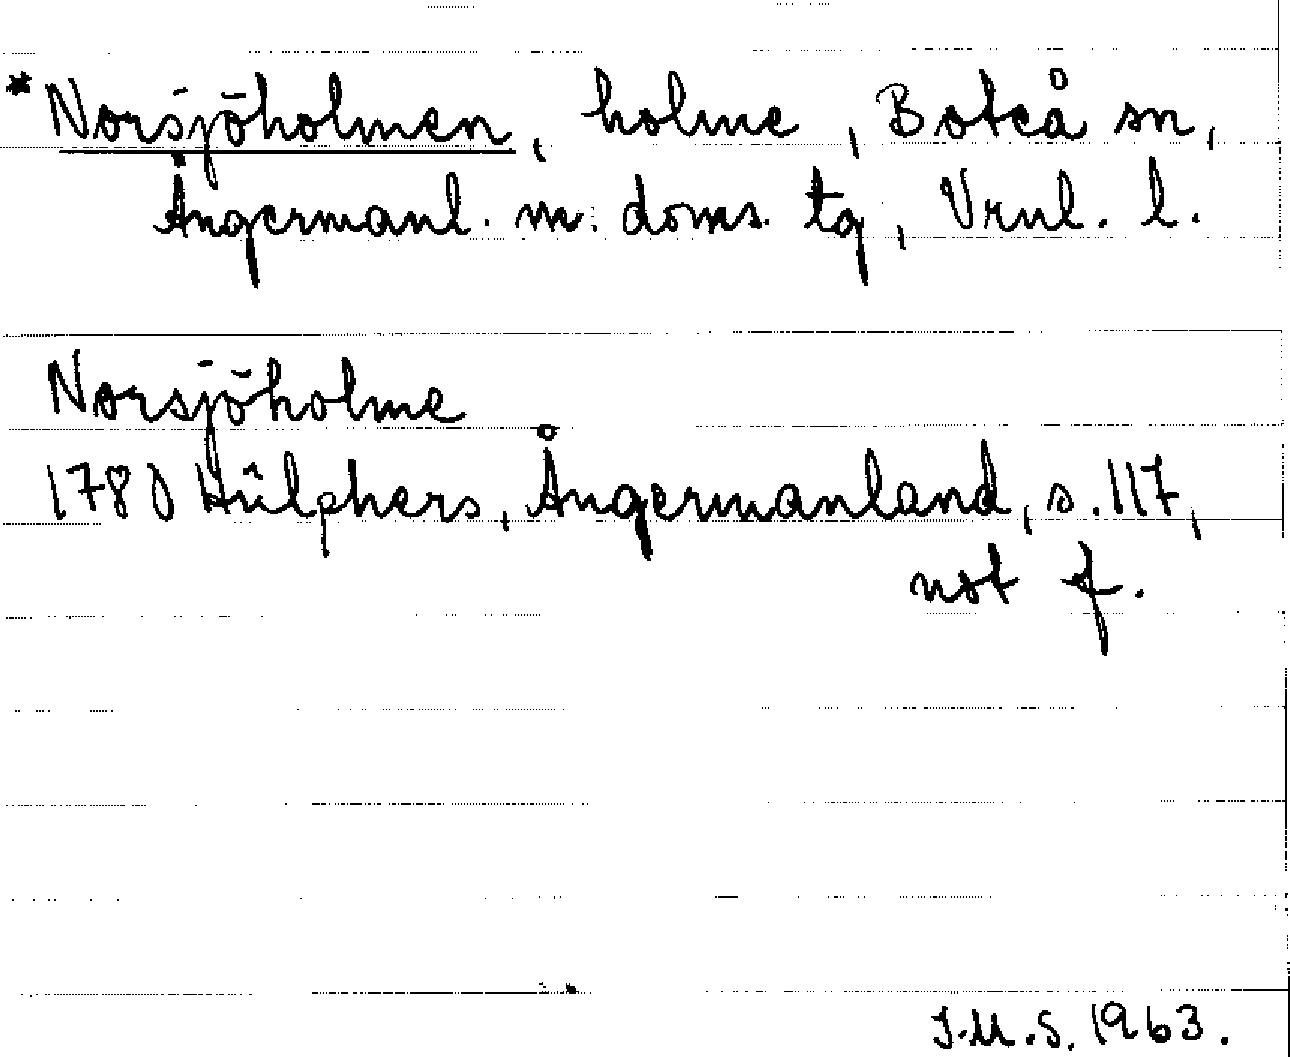 *Norsjöholmen, holme, Boteå sn,
Ångermanl. m. doms. tg, Vrnl. l.
Norsjöholme
1780 Hülphers, Ångermanland, s. 117,
not f.
J.M.S. 1963.